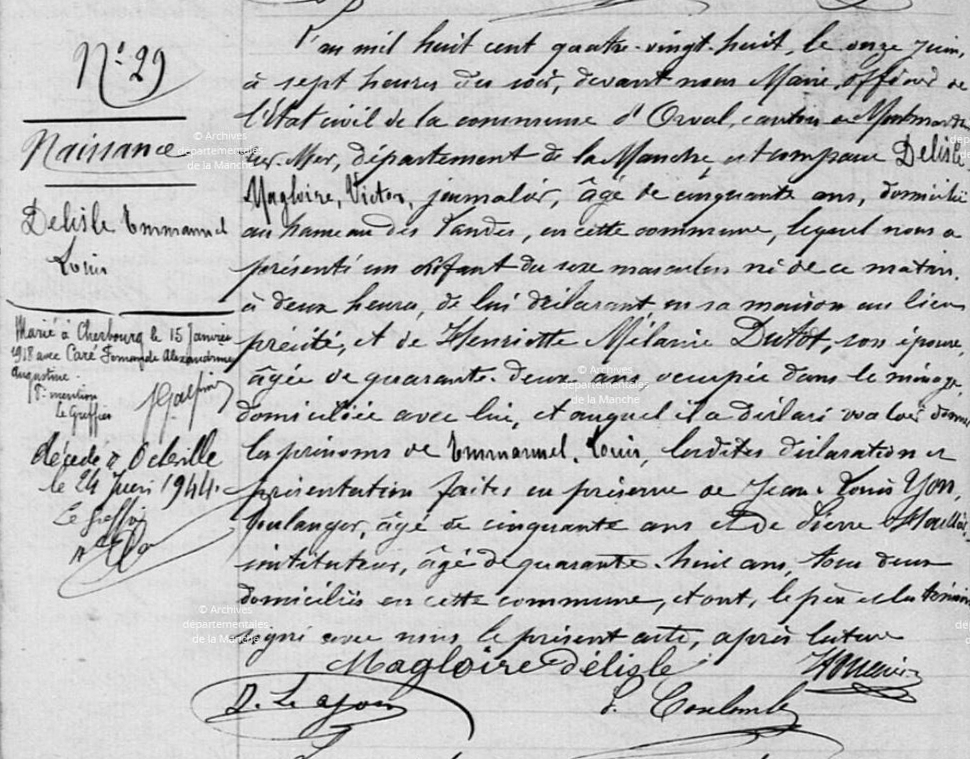 N° 29
Naissance
Delisle Emmanuel
Louis
Marié à Cherbourg le 15 Janvier
1918 avec Caré Fernande Alexandrine
Augustine.
Pr mention
Le Greffier
décédé à Octeville
le 24 Juin 1944.
Le Greffier
L'an mil huit cent quatre-vingt-huit, le onze juin,
à sept heures du soir, devant nous Maire, officier de
l'État civil de la commune d'Orval, canton de Montmartin
sur-Mer, département de la Manche est comparu Delisle
Magloire, Victor, journalier, âgé de cinquante ans, domicilié
au hameau des Landes, en cette commune, lequel nous a
présenté un enfant du sexe masculin né de ce matin,
à deux heures, de lui déclarant, en sa maison au lieu
precité, et de Henriette Mélanie Dutôt, son épouse,
âgée de quarante-deux ans, occupée dans le ménage,
domiciliée avec lui, et auquel il a déclaré vouloir donner
les prénoms de Emmanuel, Louis, lesdites déclaration et
présentation faites en présence de Jean-Louis Yon,
boulanger, âgé de cinquante ans et de Pierre
instituteur, âgé de quarante-huit ans, tous deux
domiciliés en cette commune, et ont, le père et les témoins
signé avec nous le présent acte, après lecture
Magloire Délisle
© Archives
départementales
de la Manche
© Archives
départementales
de la Manche
© Archives
départementales
de la Manche